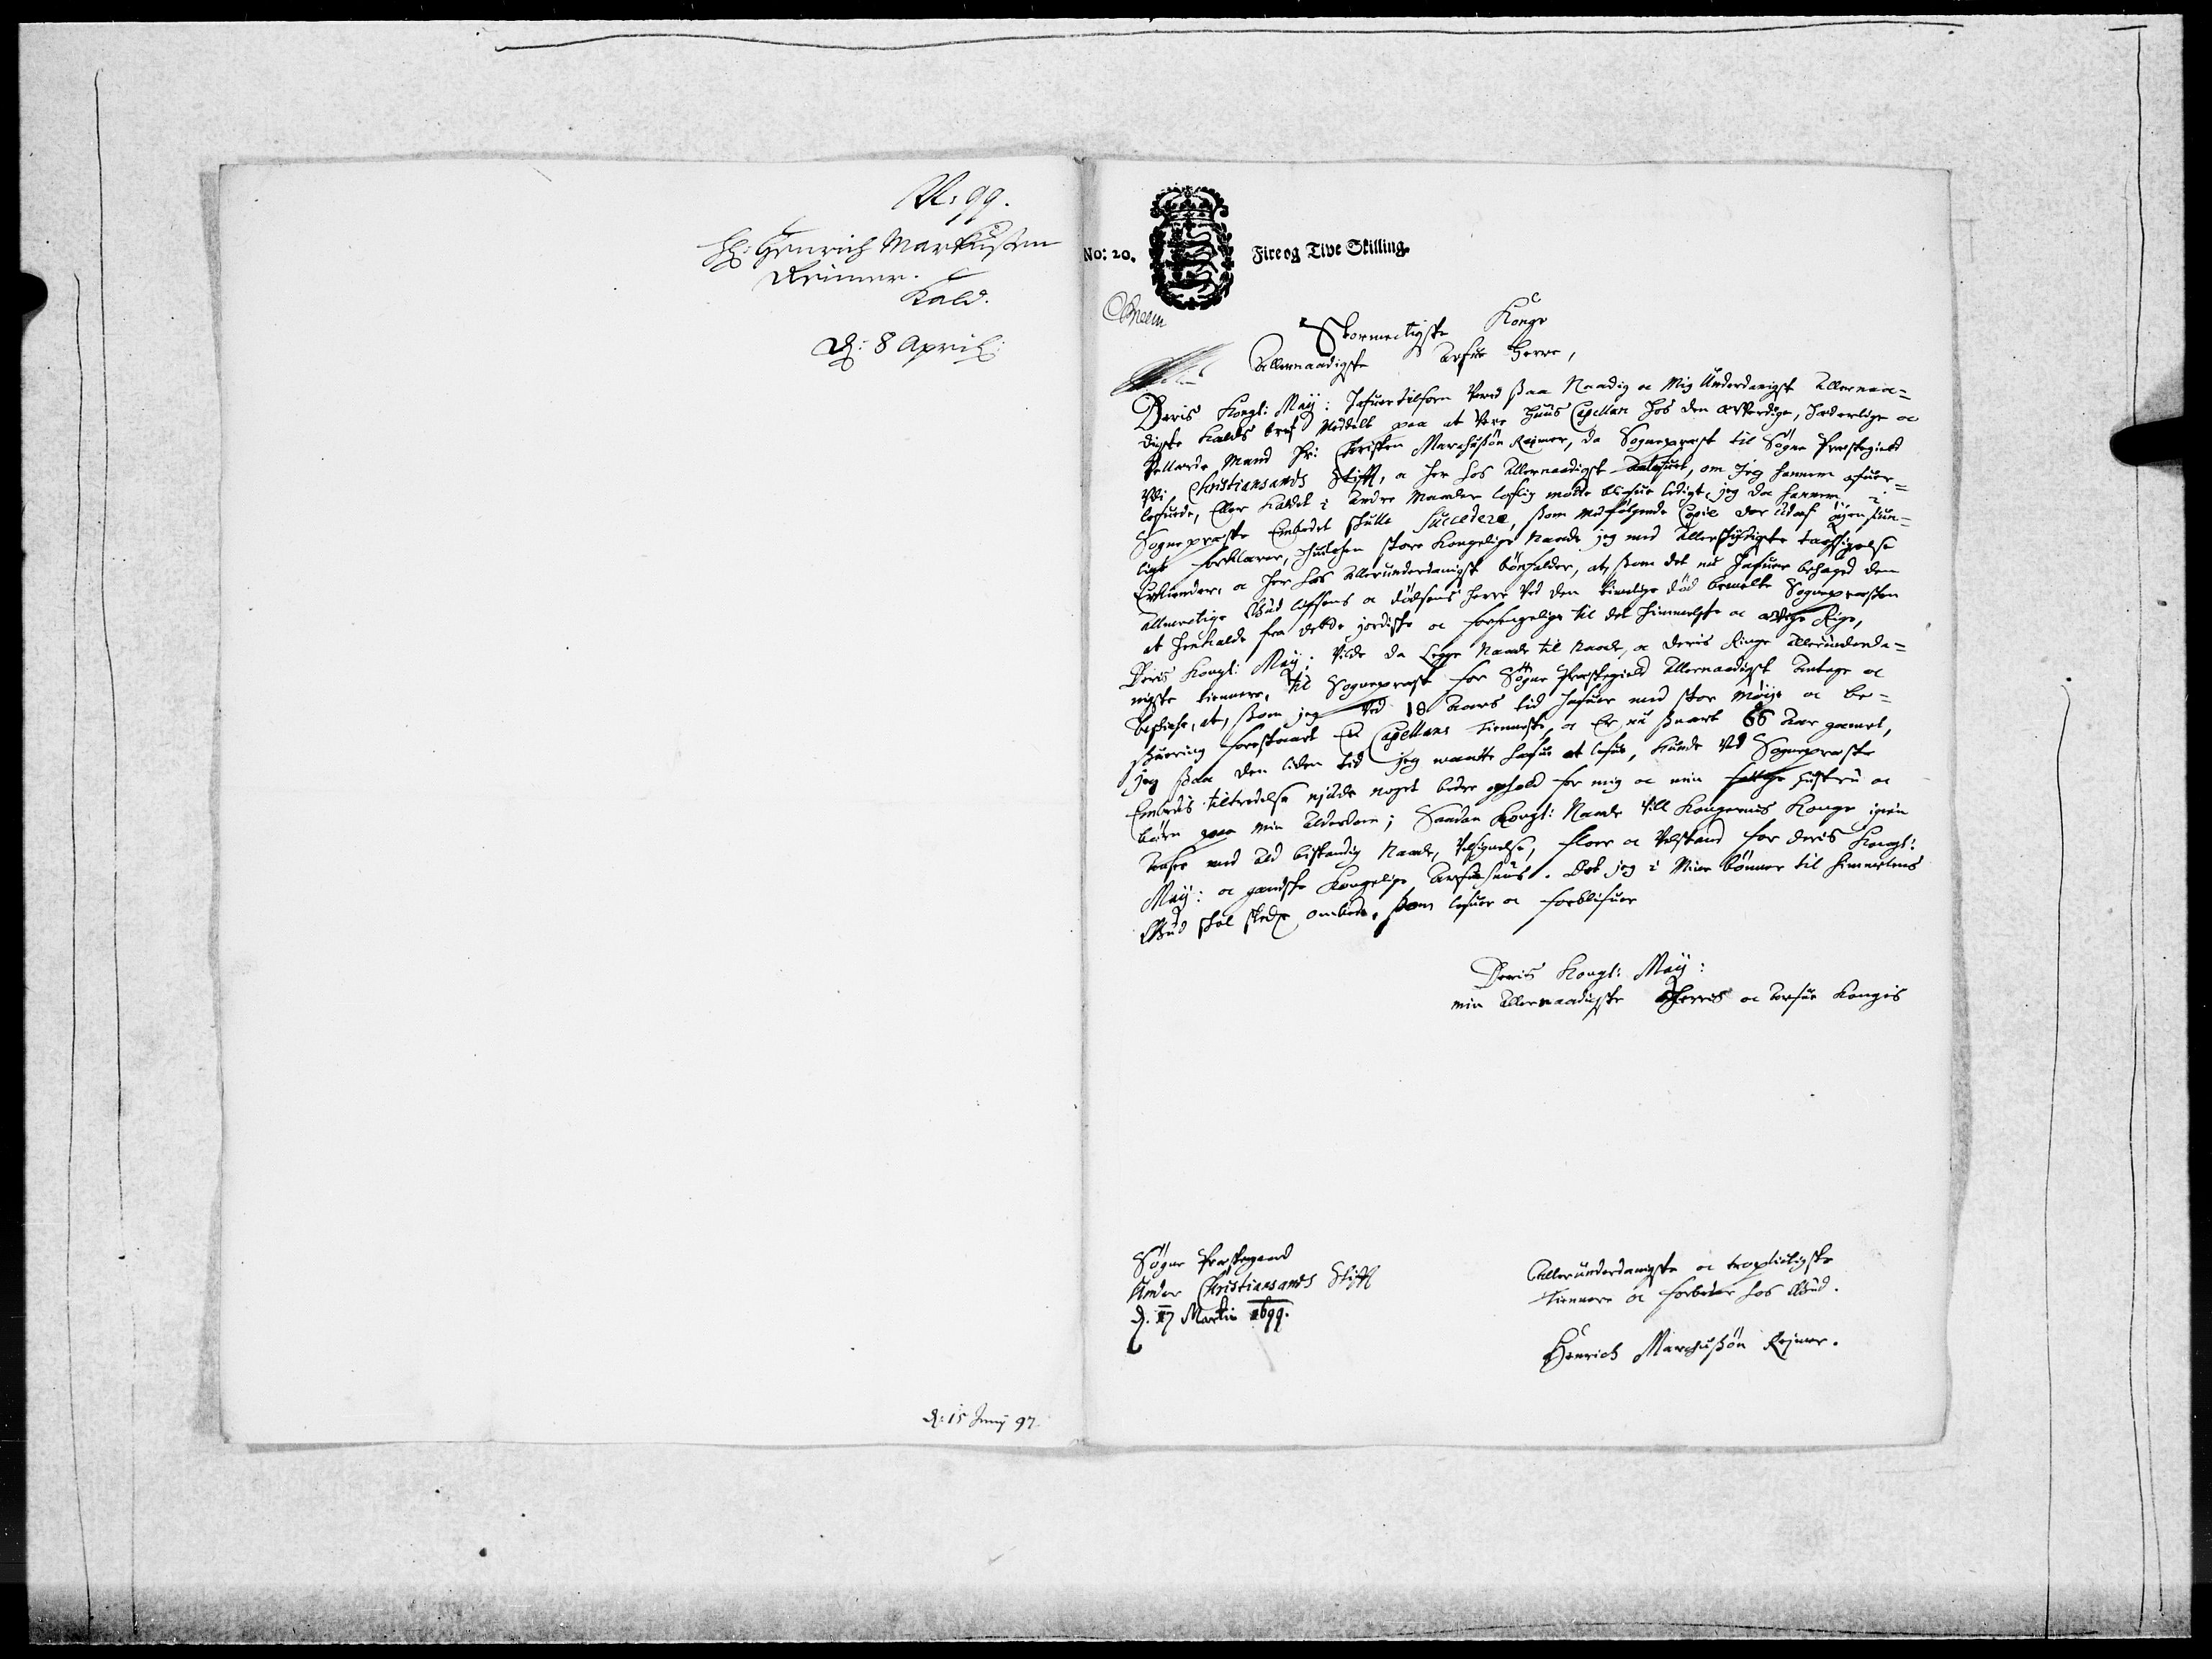 No. 99.
Hr: Henrich Markussen
Reimer.
Kald.
d: 8 April:
d: 15 Junij 97.
No: 20. Fire og Tive Skilling.
Stormectigste Konge
Allernaadigste Arfue Herre,
Deris Kongl: May: hafuer tilforn verid saa Naadig oc Mig Underdanigst Allernaa=
digste Kalds bref Meddelt paa at vere Huus Capellan hos den Ærverdige, Hæderlige oc
Vellærde Mand Hr: Christen Marchussøn Reimer, da Sogneprest til Søgne Prestegield
Udi Christiansands Stifft, oc her hos Allernaadigst, om Jeg hannem ofuer=
lefuede, Eller Kaldet i andre Maader lofflig motte blifue ledigt, jeg da hannem i
Sogneprests Embedet skulle Succedere, som medfølgende Copie der Udaf øyensiun=
ligt forklarer, huilchen store Kongelige Naade jeg med Allerskyldigste tachsigelse
Erkiender, oc her hos Allerunderdanigst bønfalder, at, som det nu hafuer behaged den
Allmectige Gud lifsens oc dødsens Herre Ved den timelige død bemelte Sognepresten
at henkalde fra dette jordiske oc forfengelige til det himmelske oc Ævige Rige,
Deris Kongl: May: Vilde da Legge Naade til Naade, oc deris Ringe Allerunderda=
nigste tienere, til Sogneprest for Søgne Prestegield Allernaadigst Antage oc
beskicke, at, som jeg Ved 18 Aars tid hafuer med stor Møye oc be=
suering forestaaet En Capellans tienneste, oc Er nu snart 66 Aar gamel,
jeg paa den liden tid jeg maatte hafue at lefue, kunde Ved Sogneprests
Embeds tiltredelse njude noget bedre ophold for mig oc min fattige hustru oc
børn paa min Alderdom; Saadan Kongl: Naade Vill Kongernes Konge igien
med All bestandig Naade, Velsignelse, floor oc Velstand for deris Kongl:
May: oc gandske Kongelige Arfuehuus. Det jeg i Mine bønner til himmelens
Gud skal stedze ombede, som lefuer oc forblifuer
Deris Kongl: May:
min Allernaadigste Herris oc Arfue Kongis
Søgne Prestegaard
Under Christiansands Stifft
d. 17 Martii 1699.
Allerunderdanigste oc tropligtigste
tienere oc forbeder hos Gud.
Henrich Marchussøn Reimer.